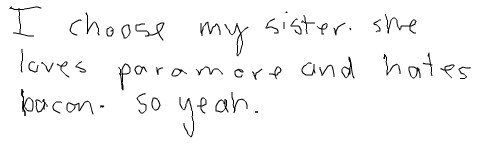 I choose my sister. she
loves paramore and hates
bacon. so yeah.